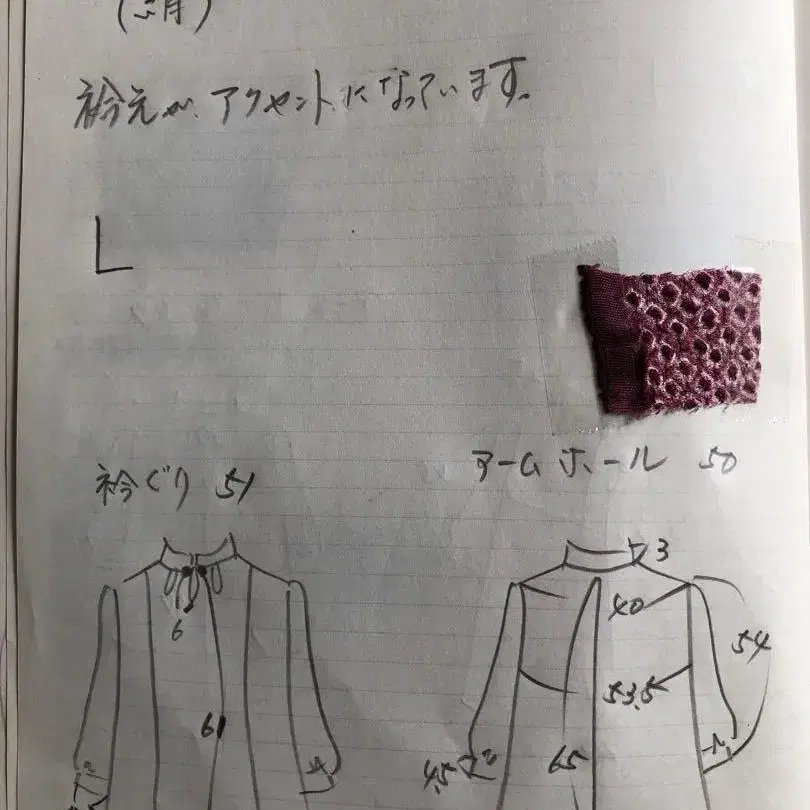 衿元が、アクセントになっています。
衿ぐり 51
アームホール 50
3
6
40
54
53.5
61
65
4.5